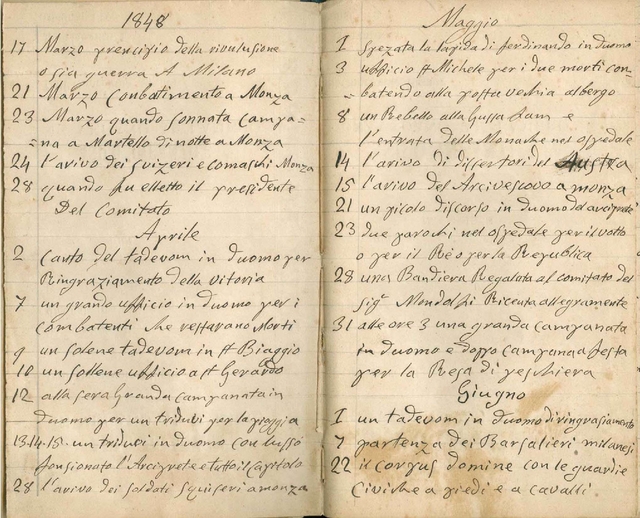 1848
17 Marzo prencipio della rivulusione
o sia guerra A Milano
21 Marzo Conbatimento a Monza
23 Marzo quando sonnata campa=
=na a Martello di notte a Monza
24 l'arivo dei svizeri e comaschi Monza
28 quando fu elletto il presidente
Del Comitato
Aprile
2 canto del tadevom in duomo per
Ringraziamento della vitoria
7 un grando ufficio in duomo per i
combatenti che restarano Morti
9 un solene tadevom in St Biaggio
10 un sollene ufficio a St Gerardo
12 alla sera Granda campanata in
duomo per un triduvi per la pioggia
13-14-15- un triduvi in duomo con lusso
fonsionato l'Arciprete e tutto il Capitolo
28 l'arivo dei soldati a monza
Maggio
1 spezata la lapida di ferdinando in duomo
3 ufficio St Michele per i due morti con=
=batendo alla posta vechia albergo
8 un Rebello alla e
l'entrata delle Monache nel ospedale
14 l'arivo di dissertori del Austra
15 l'arivo del Arcivescovo a monza
21 un picolo discorso in duomo del arciprete
23 due parochi nel ospedale per il votto
o per il Rè o per la Republica
28 una Bandiera Regalata al comitato del
sigr Mondolfi Riceuta allegramente
31 alle ore 3 una granda campanata
in duomo e doppo campana a festa
per la Resa di peschiera
Giugno
1 un tadevom in duomo di ringrasiamento
7 partenza dei Barsalieri milanesi
22 il corpus domine con le guardie
Civiche a piedi e a cavalli